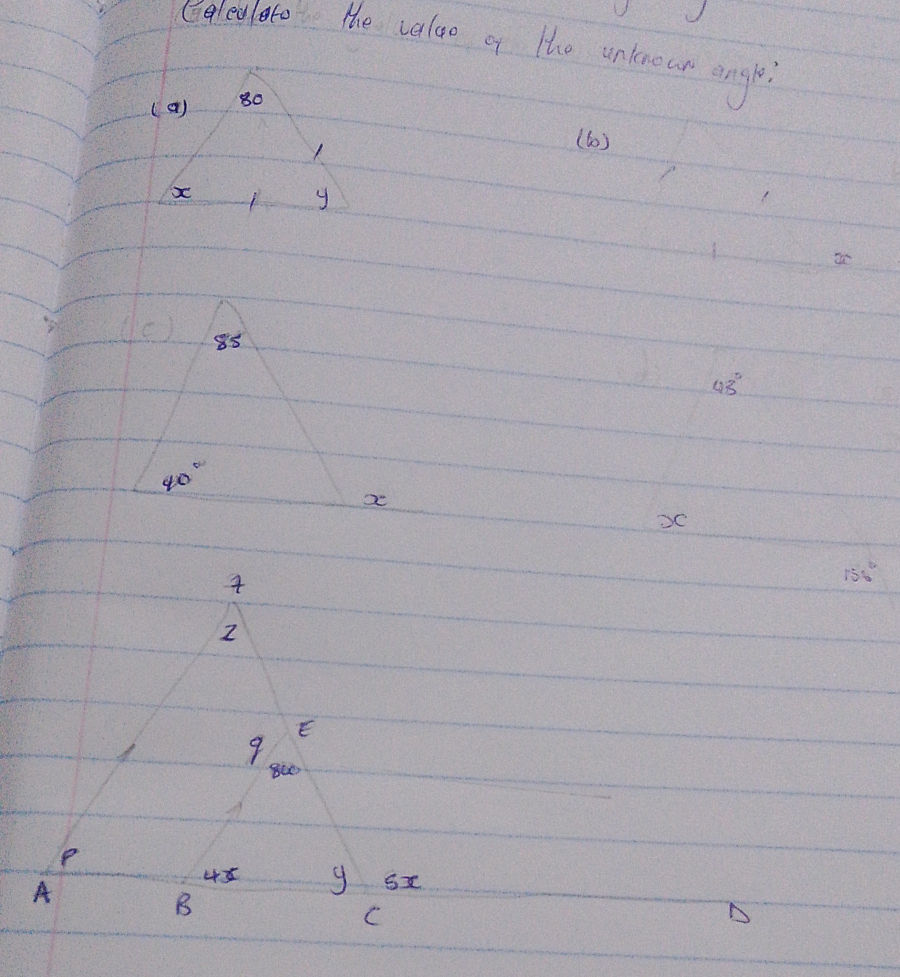 Calculate the value of the unknown angle:
(a)
80
x
y
(b)
x
(c)
85
40°
x
48°
x
156°
7
Z
q
E
800
P
4x
y
5x
A
B
C
D